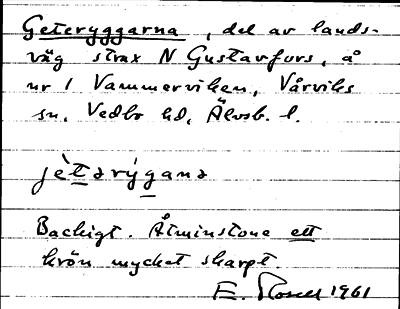 Geteryggarna, del av lands-
väg strax N Gustavfors, å
nr 1 Vammerviken, Vårviks
sn, Vedbo hd, Älvsb. l.
jètərýgana
Backigt. Åtminstone ett
krön mycket skarpt.
E. 1961